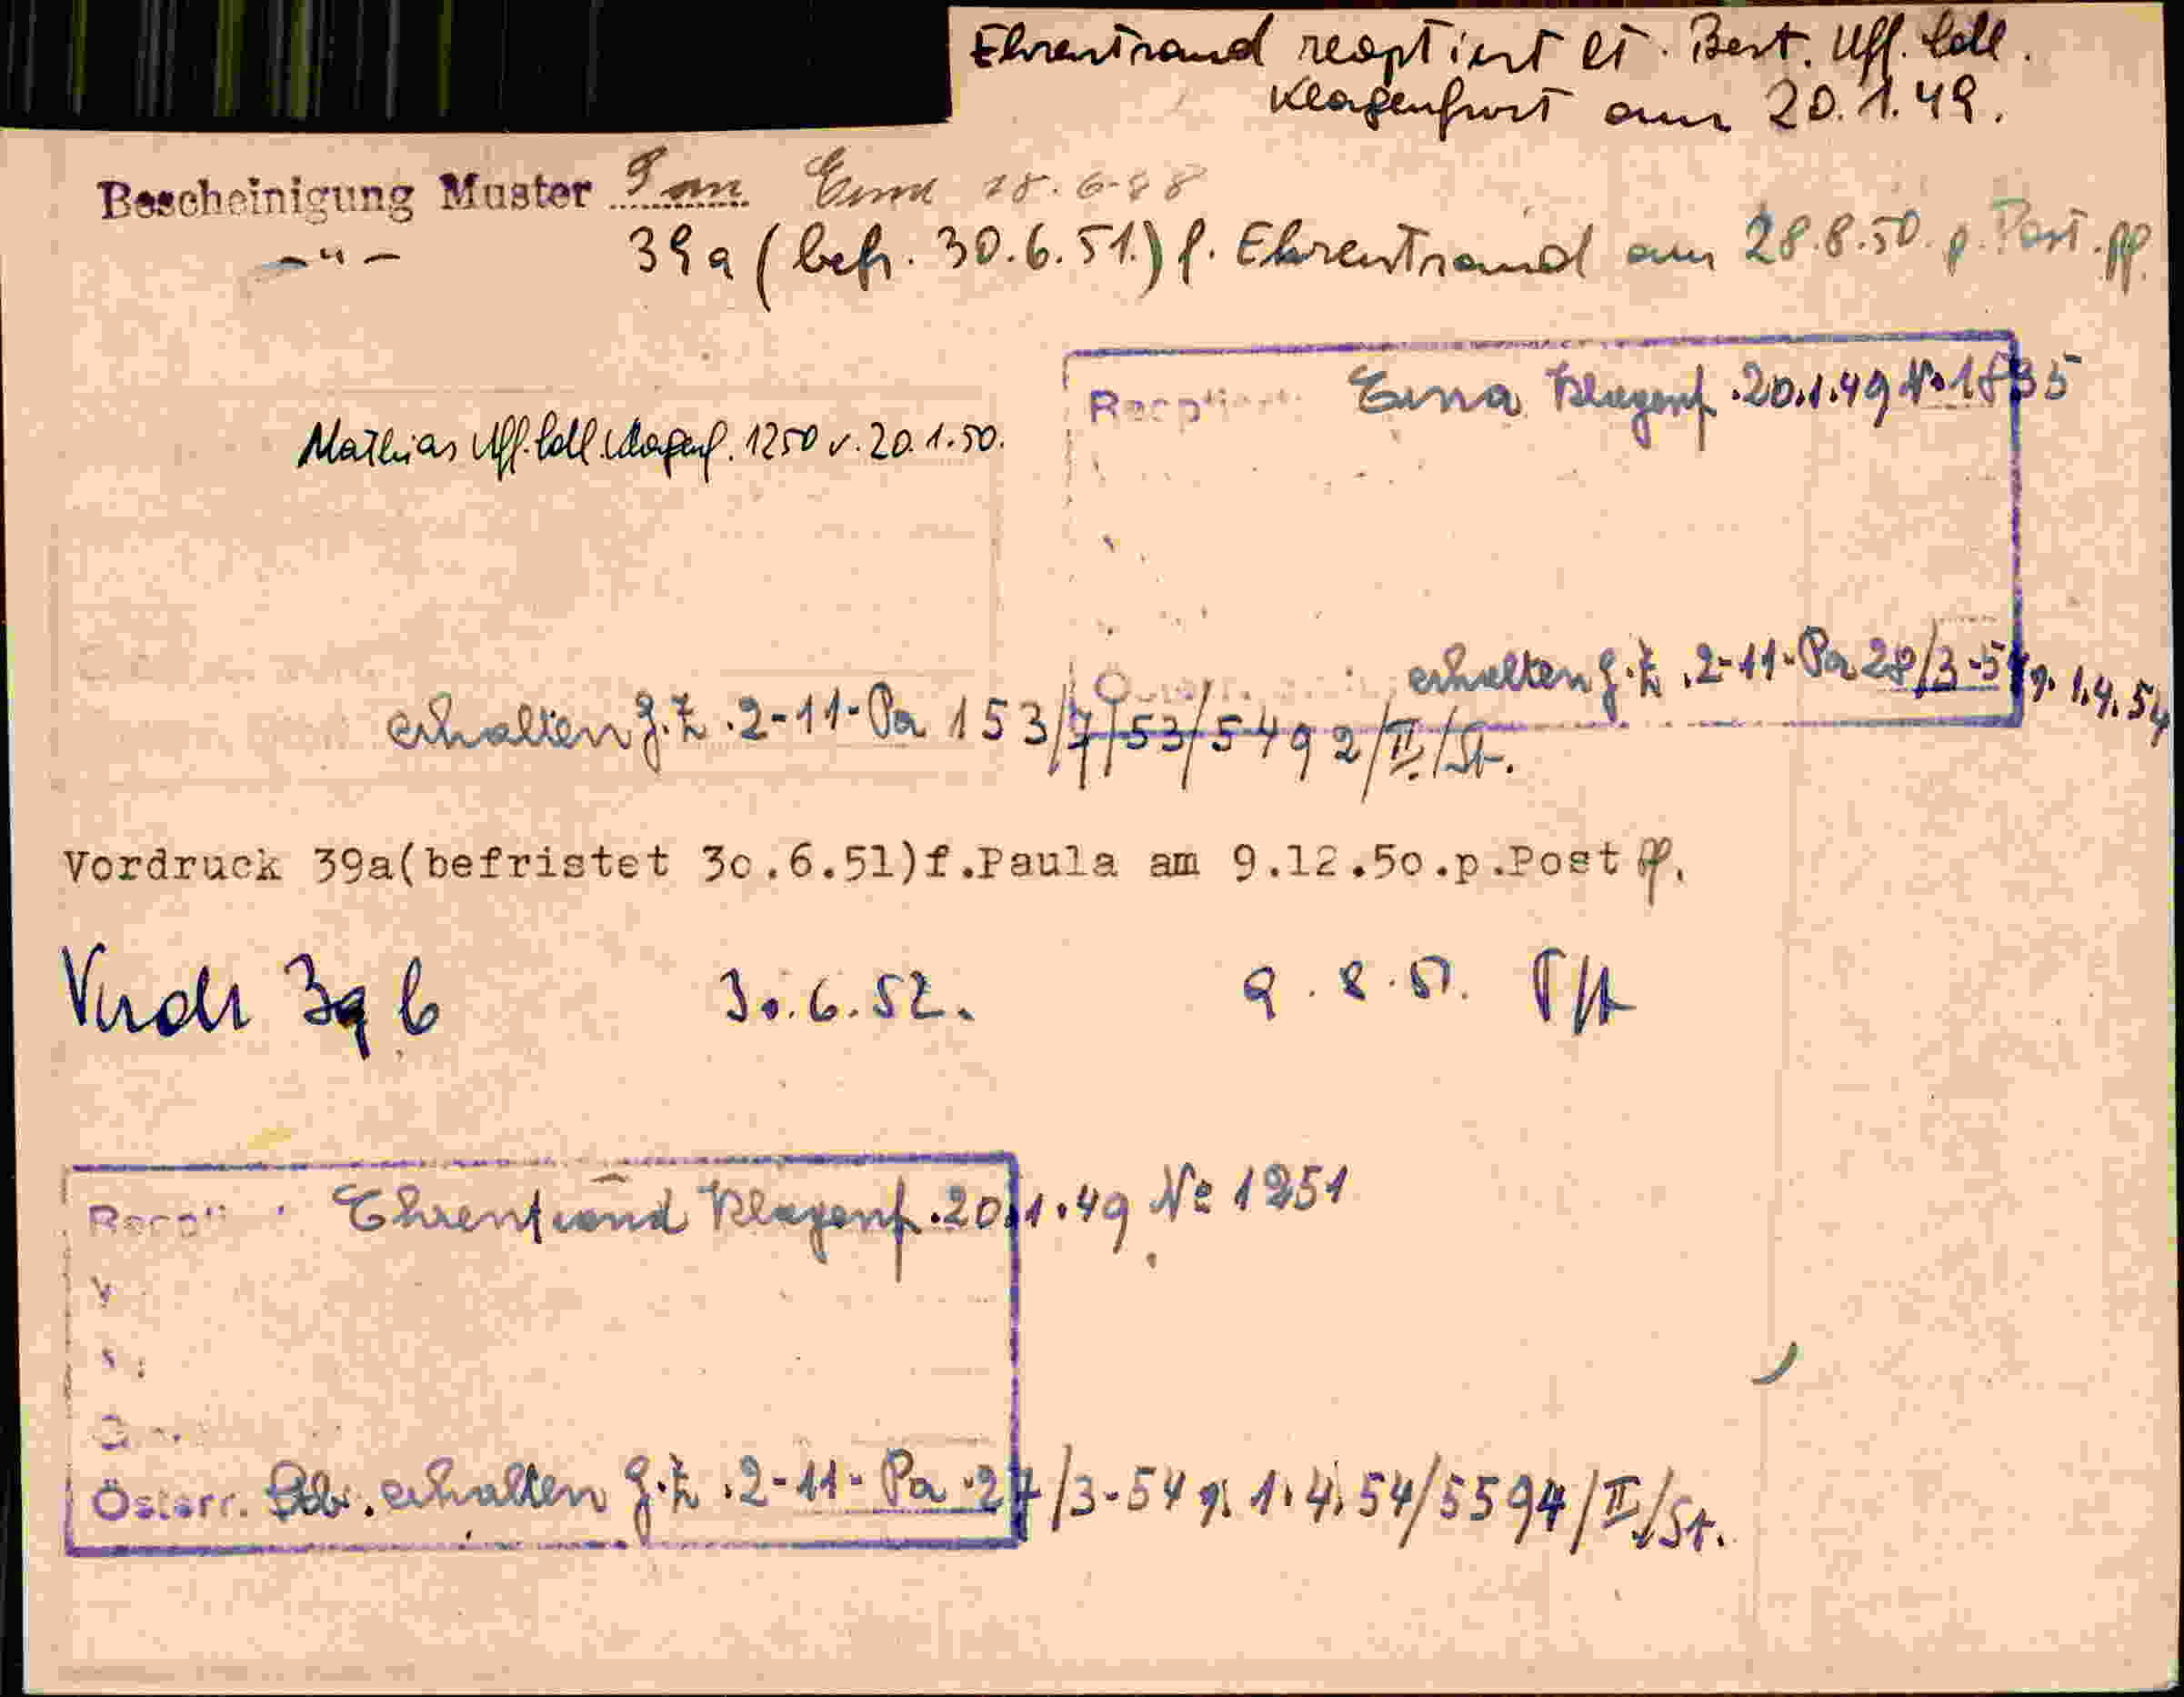 Ehrentraud reoptiert lt. Best. Uff. Coll.
Klagenfurt am 20.1.49.
Bescheinigung Muster Erna 28.6.48
-"- 39a (befr. 30.6.51.) f. Ehrentraud am 28.8.50. p. Post. pp.
Reoptiert Erna Klagenf. 20.1.49 No 1835
Mathias Uff. Coll. Klagenf. 1250 v. 20.1.50.
erhalten g. Z. .2-11-Pa 28/3-54 v. 1.4.54
erhalten g. Z. .2-11-Pa 153/7/53/5492/II/St.
Vordruck 39a(befristet 30.6.51)f.Paula am 9.12.50.p.Post pp.
Vordr 39 b 30.6.52. 9.8.51.
Ehrentraud Klagenf. 20.1.49 No 1251
Österr. Stb. erhalten g. Z. .2-11-Pa 27/3-54 v. 1.4.54/5594/II/St.